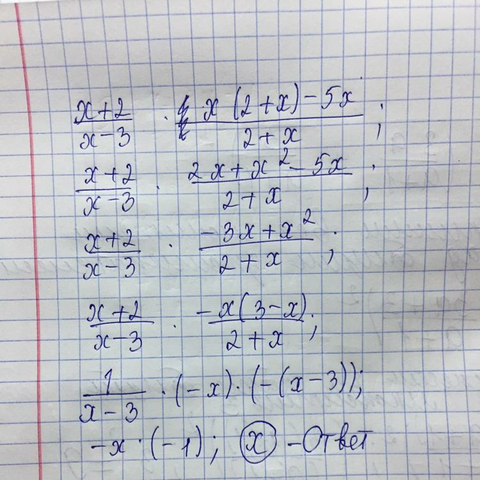 (x+2)/(x-3) · (x(2+x)-5x)/(2+x);
(x+2)/(x-3) · (2x+x²-5x)/(2+x);
(x+2)/(x-3) · (-3x+x²)/(2+x);
(x+2)/(x-3) · (-x(3-x))/(2+x);
1/(x-3) · (-x) · (-(x-3));
-x · (-1); x - Ответ